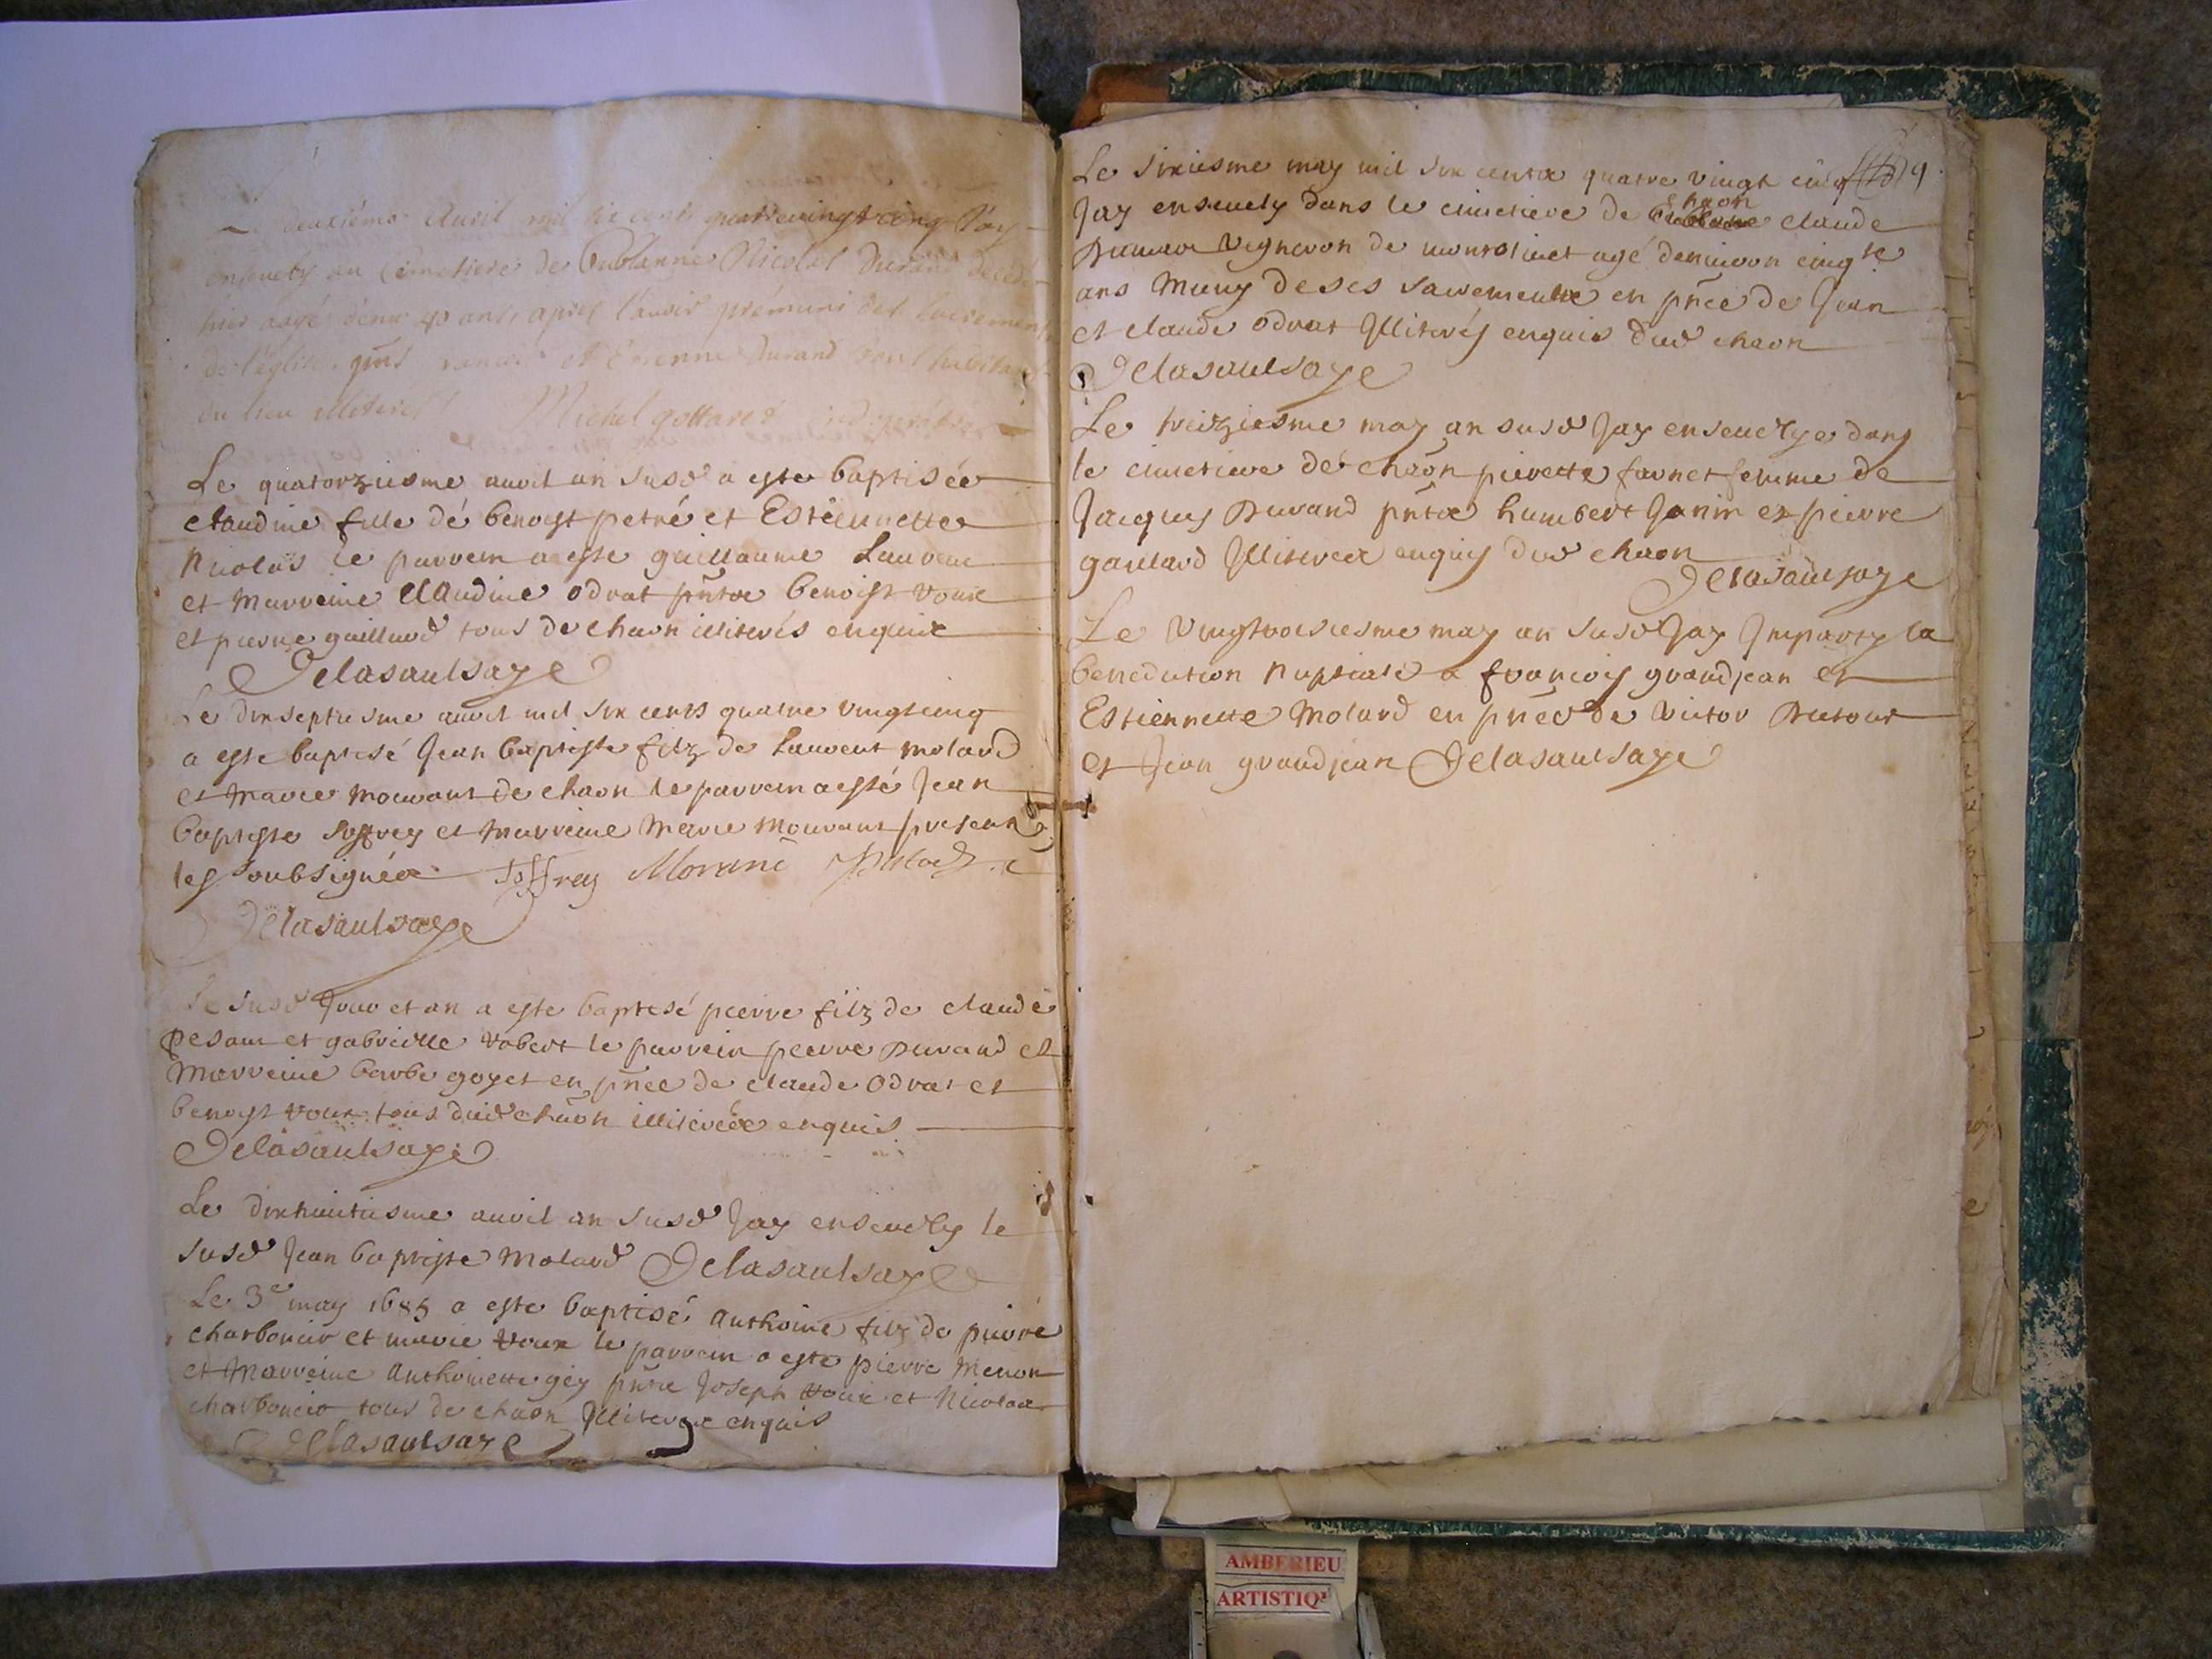 Le deuxiéme Auril mil six cent quatreuingt cinq J'ay
enseuely au Cemetiere de Oublanne Nicolas Durand decedé
hier aagé d'enu 40 ans, apres l'auoir prémuni des sacremens
de l'église, et Etienne Durand
du lieu illiteres Michel gottaret
Le quatorziesme auril an susd a este baptisée
claudine fille de benoist petré et Estiennette
Nicolas le parrein a este guillaume Laurent
et marreine Claudine odrat pntx benoist voux
et pierre gaillard tous de chaon illiterés enquix
Delasaulsaye
Le dixseptiesme auril mil six cents quatre vingtcinq
a este baptisé Jean baptiste filz de Laurent molard
et marie mourant de chaon le parrein a esté Jean
baptiste soffrey et marreine marie mourant presents
les soubsignéx Soffrey Morant
Delasaulsaye
Le susd Jour et an a este baptisé pierre filz de claude
pesant et gabrielle robert le parrein pierre Durand et
Marreine barbe goyet en pnce de claude odrat et
benoist voux tous dud chaon illiteréx enquis
Delasaulsaye
Le dixhuitiesme auril an susd Jay enseuely le
susd Jean baptiste molard Delasaulsaye
Le 3e may 1685 a este baptisé anthoine filz de pierre
charbonier et marie voux le parrein a este pierre menon
et Marreine anthoinette gey pnts Joseph voux et Nicolas
charbonier tous de chaon Jlliterex enquis
Delasaulsaye
Le sixiesme may mil six centx quatre vingt cinq 9
chaon
Jay enseuely dans le cimetiere de claude
Dumax vigneron de montolivet agé denuiron cinqte
ans muny de ses sacrementx en pnce de Jean
et claude odrat Jlliterés enquis dud chaon
Delasaulsaye
Le treiziesme may an susd Jay enseuelye dans
le cimetiere de chaon pierette fornet femme de
Jacques Durand pntx humbert Janin et pierre
gaillard Jlliterex enquis dud chaon
Delasaulsaye
Le vingtroisiesme may an susd Jay Jmparty la
benediction nuptiale a francois grandjean et
Estiennette Molard en pnce de victor Dutour
et Jean grandjean Delasaulsaye
AMBERIEU
ARTISTIQ